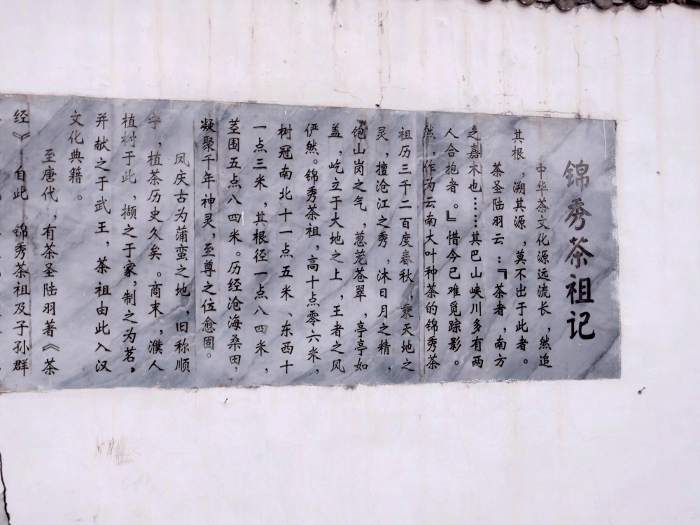 锦秀茶祖记
中华茶文化源远流长，然追
其根，溯其源，莫不出于此者。
茶圣陆羽云：『茶者，南方
之嘉木也……其巴山峡川多有两
人合抱者。』惜今已难觅踪影。
然，作为云南大叶种茶的锦秀茶
祖历三千二百度春秋，秉天地之
灵，擅沧江之秀，沐日月之精，
饱山岗之气，葱茏苍翠，亭亭如
盖，屹立于大地之上，王者之风
俨然。锦秀茶祖，高十点零六米，
树冠南北十一点五米、东西十
一点三米，其根径一点八四米，
茎围五点八四米。历经沧海桑田，
凝聚千年神灵，至尊之位愈固。
凤庆古为蒲蛮之地，旧称顺
宁，植茶历史久矣。商末，濮人
植树于此，撷之于家，制之为茗，
并献之于武王，茶祖由此入汉
文化典籍。
至唐代，有茶圣陆羽著《茶
经》，自此，锦秀茶祖及子孙群